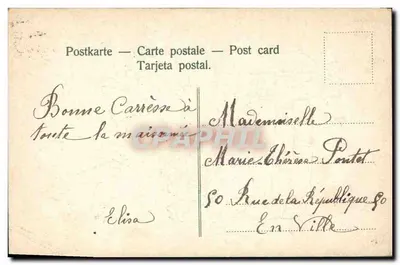 Postkarte — Carte postale — Post card
Tarjeta postal.
Bonne Carrèsse à
toute la maisonnée
Elisa
Mademoiselle
Marie-Thérèse Pontet
50 Rue de la République 50
En Ville
CPAPHIL